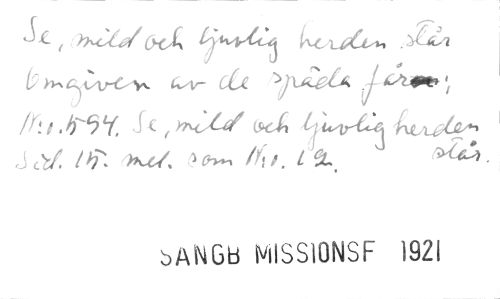 Se, mild och ljuvlig herden står
Omgiven av de späda får;
N:o. 594. Se, mild och ljuvlig herden
Sid. 15. mel. som N:o. 12. står.
SANGB MISSIONSF 1921